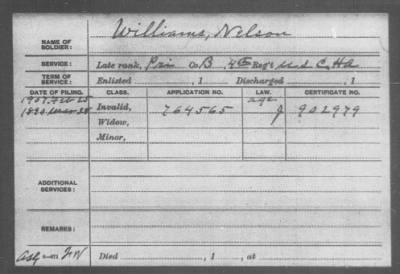 NAME OF SOLDIER: Williams, Nelson
SERVICE: Late rank, Pri Co B, 4th Reg't U.S.C. HA
TERM OF SERVICE: Enlisted , 1 Discharged , 1
DATE OF FILING. CLASS. APPLICATION NO. LAW. CERTIFICATE NO.
1907 Feb 25 age
1890 Invalid, 764565 J 902979
Widow,
Minor,
ADDITIONAL SERVICES:
REMARKS:
Died , 1 , at